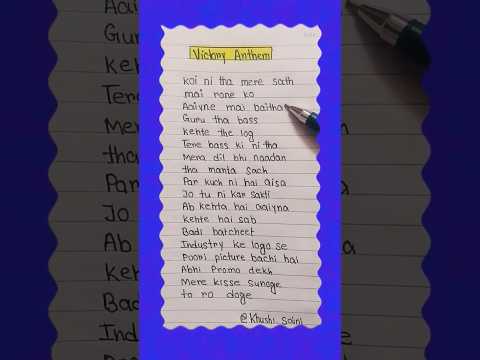 Victory Anthem
Koi ni tha mere sath
mai rone ko
Aaiyne mai baitha
Guru tha bass
kehte the log
Tere bass ki ni tha
Mera dil bhi naadan
tha manta sach
Par kuch ni hai aisa
Jo tu ni kar sakti
Ab kehta hai aaiyna
kehte hai sab
Badi batcheet
Industry ke logo se
Poori picture bachi hai
Abhi Promo dekh
Mere kisse sunoge
to ro doge
@Khushi_Saini